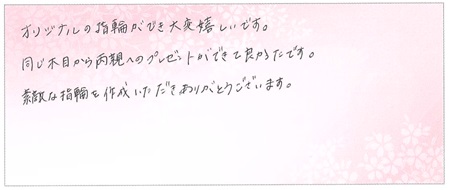 オリジナルの指輪ができ大変嬉しいです。
同じ木目から両親へのプレゼントができて良かったです。
素敵な指輪を作成いただきありがとうございます。